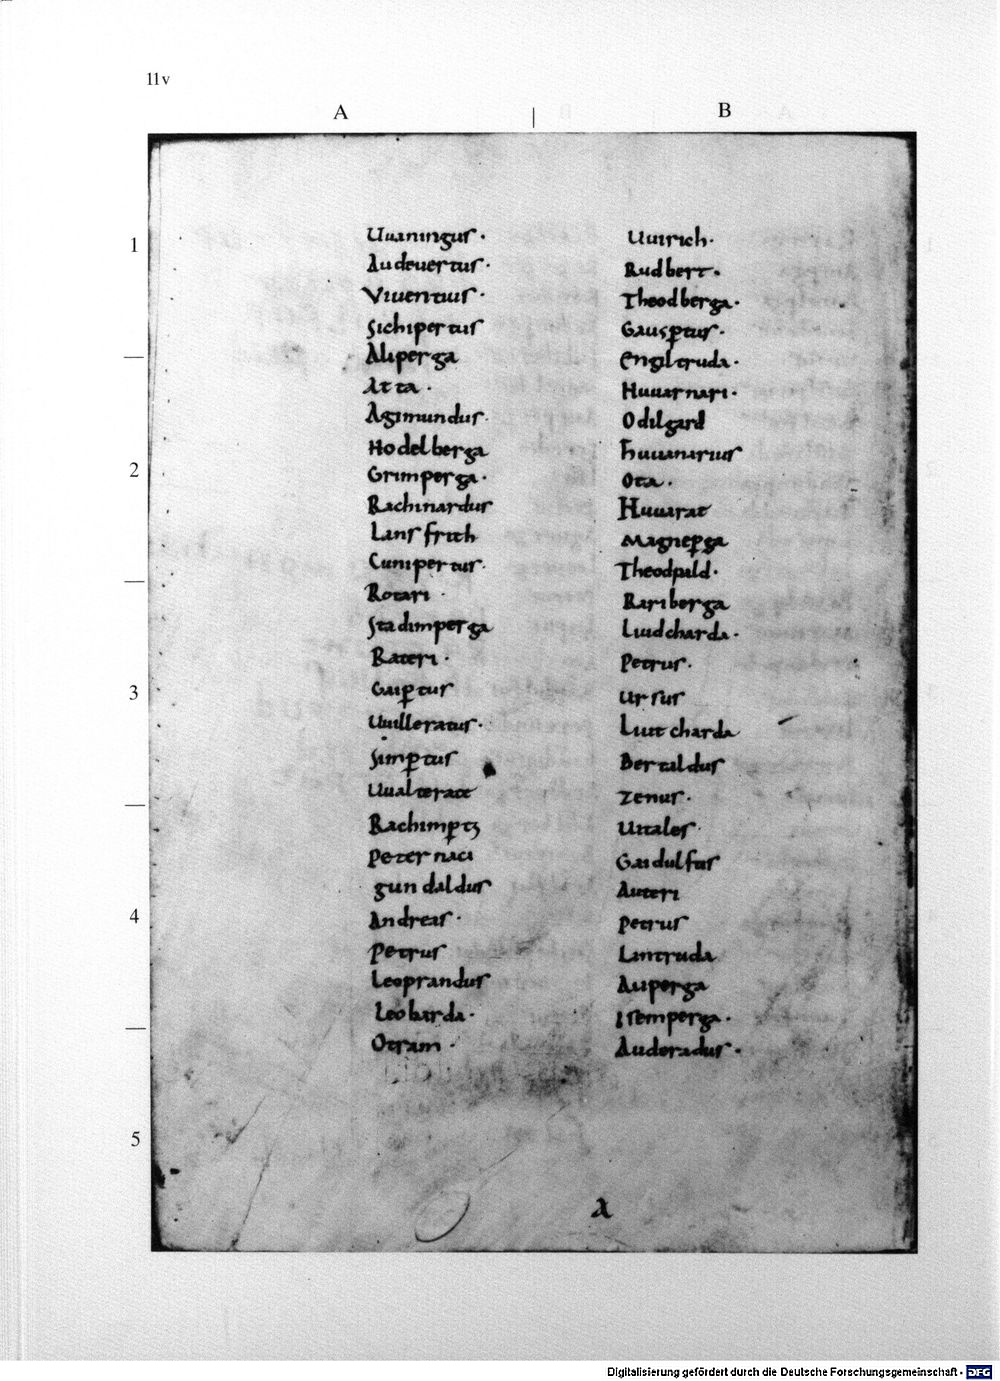 11v
A
B
1
2
3
4
5
Uuaningus·
Audeuertus·
Viuentius·
Sichipertus
Aliperga
Atta·
Agimundus·
Hodelberga
Grimperga·
Rachinardus
Lansfrith
Cunipertus·
Rotari·
Stadimperga
Rateri·
Gaip̲tus
Uuilleratus·
Simp̲tus
Uualterate
Rachimp̲tʒ
Peternaci
gundaldus
Andreas·
Petrus
Leoprandus
Leobarda·
Otram·
Uuirich·
Rudbert·
Theodberga·
Gausp̲tus·
Engiltruda·
Huuarnari·
Odilgard
Huuanarius
Ota·
Huuarat
Magnep̲ga
Theodpald·
Rariberga
Liudcharda·
Petrus·
Ursus
Liutcharda
Bertaldus
Zenus·
Uitales·
Gaidulfus
Auteri
Petrus
Lantruda
Auperga
Isemperga·
Auderadus·
a
Digitalisierung gefördert durch die Deutsche Forschungsgemeinschaft · DFG